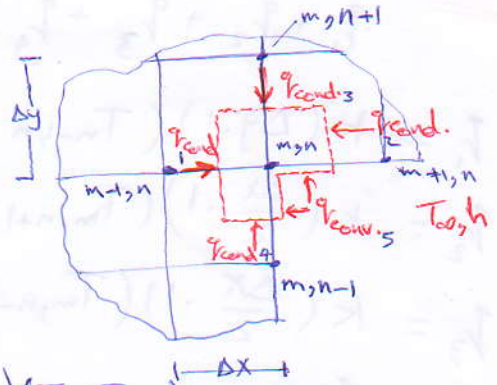 m,n+1
Δy
qcond.3
qcond 1
qcond. 2
m,n
m-1,n
m+1,n
qconv.5
T∞,h
qcond 4
m,n-1
ΔX